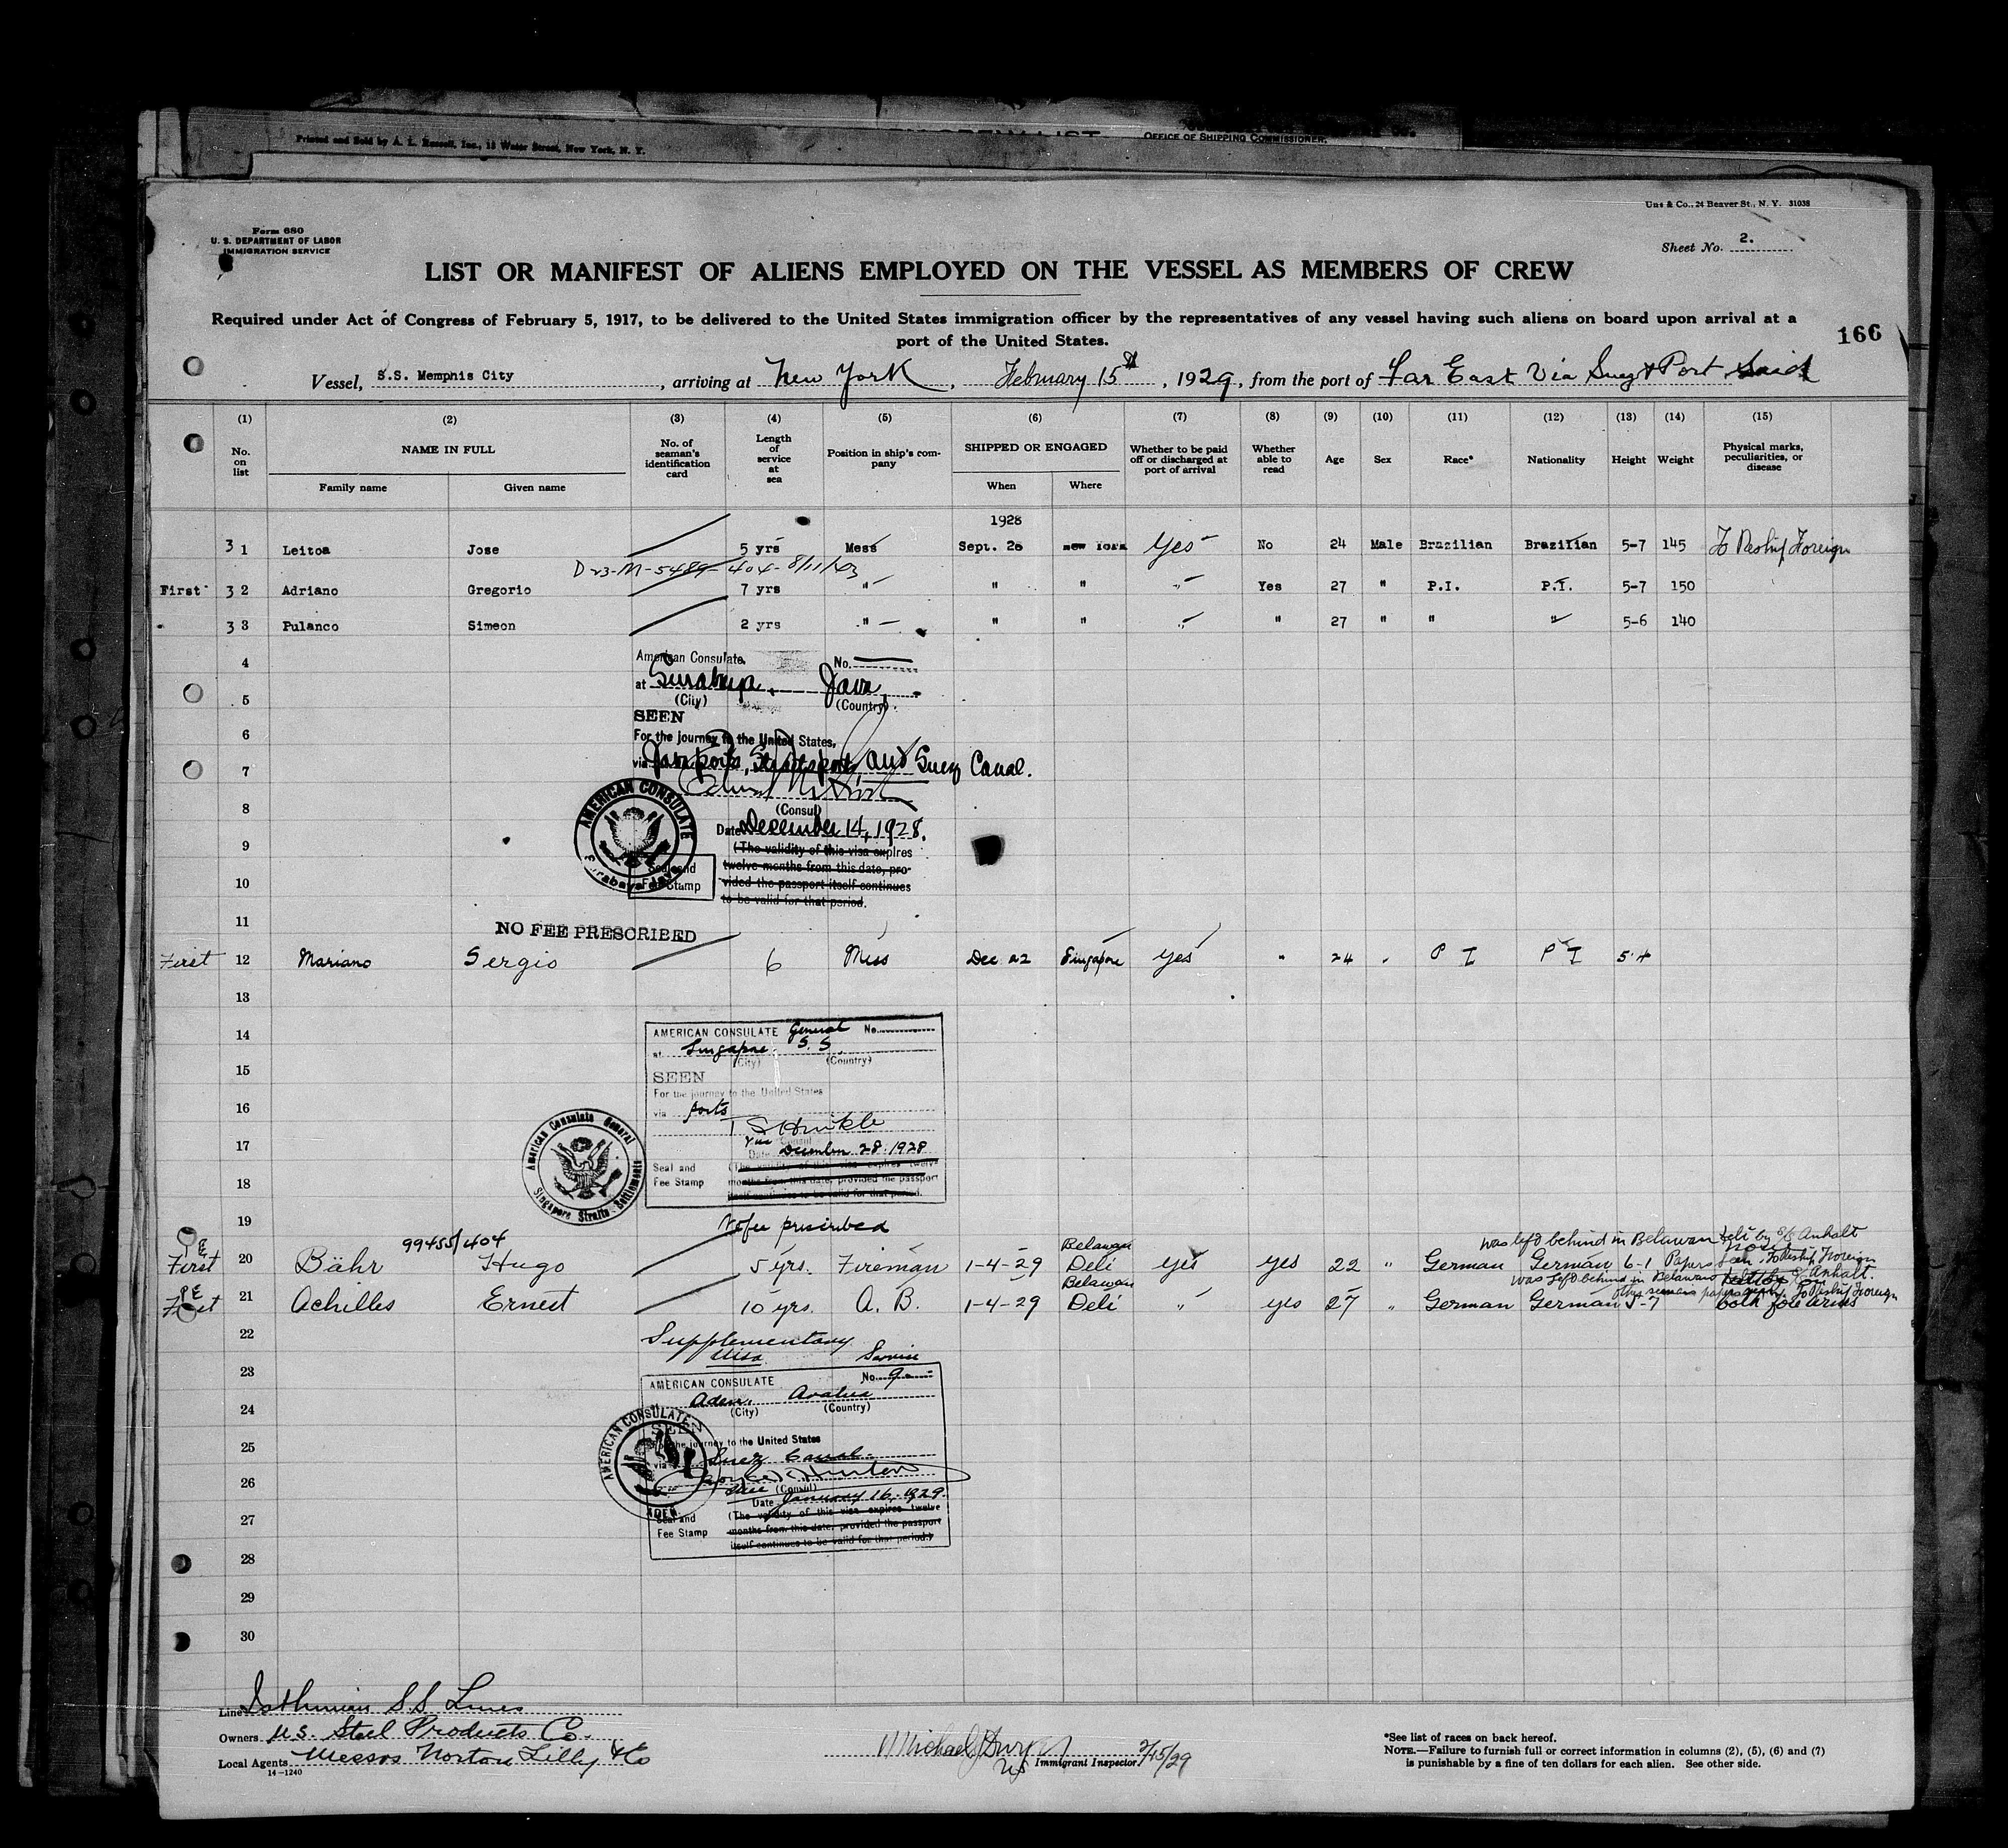 Printed and Sold by A. L. Russell, Inc., 15 Water Street, New York, N. Y.
OFFICE OF SHIPPING COMMISSIONER.
Form 680
U. S. DEPARTMENT OF LABOR
IMMIGRATION SERVICE
Uns & Co., 24 Beaver St., N. Y. 31038
Sheet No. 2.
LIST OR MANIFEST OF ALIENS EMPLOYED ON THE VESSEL AS MEMBERS OF CREW
Required under Act of Congress of February 5, 1917, to be delivered to the United States immigration officer by the representatives of any vessel having such aliens on board upon arrival at a
port of the United States.
166
Vessel, S.S. Memphis City, arriving at New York, February 15th, 1929, from the port of Far East Via Suez & Port Said
(1) (2) (3) (4) (5) (6) (7) (8) (9) (10) (11) (12) (13) (14) (15)
No. on list
NAME IN FULL
Family name Given name
No. of seaman's identification card
Length of service at sea
Position in ship's company
SHIPPED OR ENGAGED
When Where
Whether to be paid off or discharged at port of arrival
Whether able to read
Age Sex Race* Nationality Height Weight
Physical marks, peculiarities, or disease
1928
31 Leitoa Jose 5 yrs Mess Sept. 26 New York Yes No 24 Male Brazilian Brazilian 5-7 145 To Reship Foreign
D-23-M-5489-404-8/11/43
First 32 Adriano Gregorio 7 yrs " " " " Yes 27 " P.I. P.I. 5-7 150
33 Pulanco Simeon 2 yrs " " " " " 27 " " " 5-6 140
4
American Consulate No.
at Surabaya, Java
5
(City) (Country)
SEEN
6
For the journey to the United States,
7
via Java Ports, Straits ports, and Suez Canal.
8
(Consul)
AMERICAN CONSULATE
Surabaya Java
Date December 14, 1928.
9
(The validity of this visa expires
twelve months from this date, pro-
Seal and
10
vided the passport itself continues
Fee Stamp
to be valid for that period.
11
NO FEE PRESCRIBED
First 12 Mariano Sergio 6 Mess Dec 22 Singapore Yes " 24 " P I P I 5.4
13
14
AMERICAN CONSULATE General No.
at Singapore S.S.
15
(City) (Country)
SEEN
For the journey to the United States
16
via ports
T S Hinkle
17
Vice Consul
Date December 28, 1928
American Consulate General
Singapore Straits Settlements
Seal and
(The validity of this visa expires twelve
18
Fee Stamp
months from this date, provided the passport
itself continues to be valid for that period.
19
No fee prescribed
99455/404
was left behind in Belawan Deli by SS Anhalt
First 20 Bähr Hugo 5 yrs. Fireman 1-4-29 Belawan Deli Yes Yes 22 " German German 6-1 To Reship Foreign
was left behind in Belawan Deli by SS Anhalt.
First 21 Achilles Ernest 10 yrs. A. B. 1-4-29 Belawan Deli " Yes 27 " German German 5-7 To Reship Foreign
both fore arms
22
Supplementary
Visa Service
23
AMERICAN CONSULATE No. 9
Aden, Arabia
24
(City) (Country)
AMERICAN CONSULATE
ADEN
SEEN
25
For the journey to the United States
via Suez Canal
26
Vice (Consul)
Date January 16, 1929.
27
Seal and
(The validity of this visa expires twelve
Fee Stamp
months from this date, provided the passport
itself continues to be valid for that period.)
28
29
30
Line Isthmian S.S. Lines
Owners U.S. Steel Products Co.
Local Agents Messrs Norton Lilly & Co
14-1240
Immigrant Inspector. 2/15/29
*See list of races on back hereof.
NOTE.—Failure to furnish full or correct information in columns (2), (5), (6) and (7)
is punishable by a fine of ten dollars for each alien. See other side.